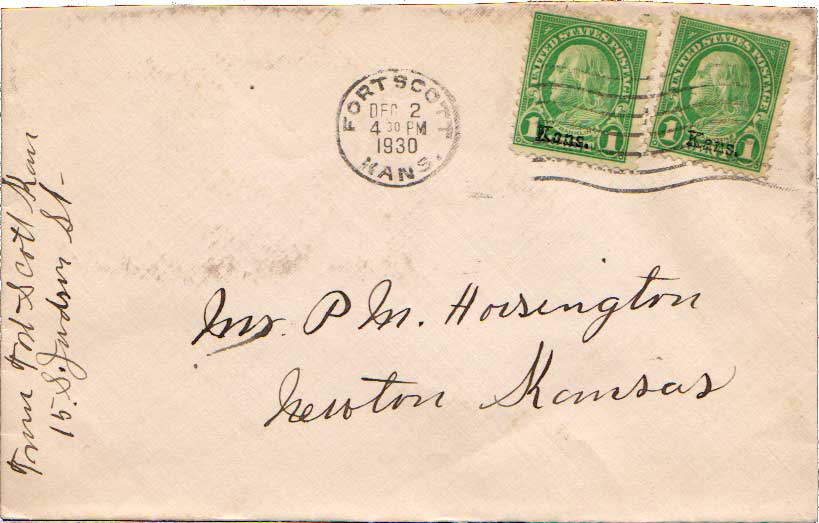 FORT SCOTT
DEC 2
4 30 PM
1930
KANS.
UNITED STATES POSTAGE
1 Kans. 1
UNITED STATES POSTAGE
1 Kans. 1
Mr. P. M. Hoisington
Newton Kansas
From Fort Scott Kan
15. S. Judson St-